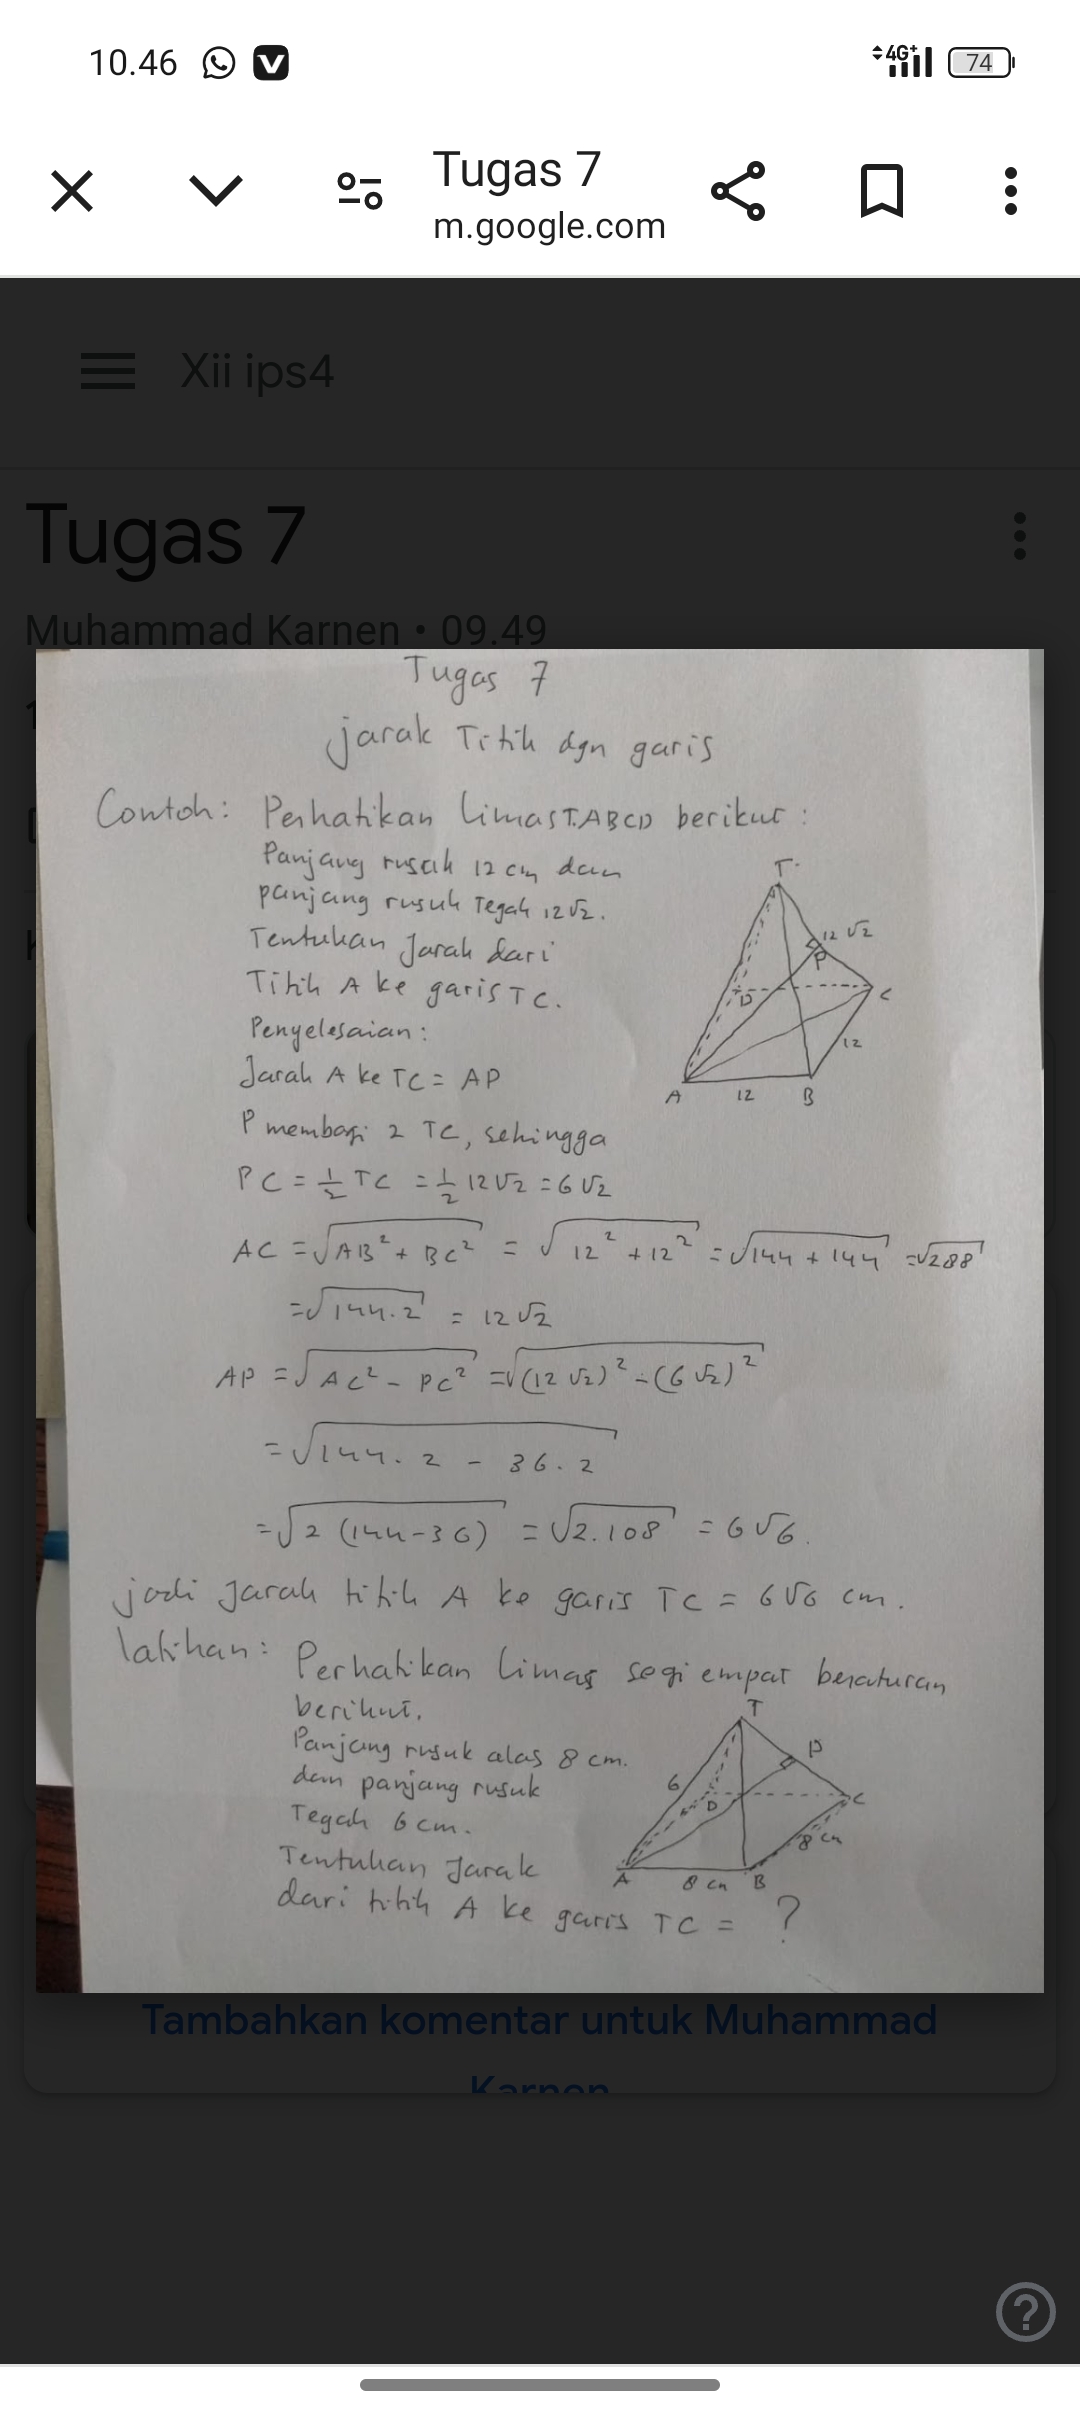 10.46
4G+
74
Tugas 7
m.google.com
Xii ips4
Tugas 7
Muhammad Karnen • 09.49
Tugas 7
jarak Titik dgn garis
Contoh: Perhatikan Limas T.ABCD berikut :
Panjang rusuk 12 cm dan
panjang rusuk Tegak 12√2.
Tentukan Jarak dari
Titik A ke garis TC.
Penyelesaian:
Jarak A ke TC = AP
P membagi 2 TC, sehingga
PC = 1/2 TC = 1/2 12√2 = 6√2
AC = √AB² + BC² = √12² + 12² = √144 + 144 = √288
= √144.2 = 12√2
AP = √AC² - PC² = √(12√2)² - (6√2)²
= √144.2 - 36.2
= √2 (144-36) = √2.108 = 6√6.
jadi Jarak titik A ke garis TC = 6√6 cm.
T
12√2
P
D
C
12
A
12
B
latihan: Perhatikan Limas segi empat beraturan
berikut.
Panjang rusuk alas 8 cm.
dan panjang rusuk
Tegak 6 cm.
Tentukan Jarak
dari titik A ke garis TC = ?
T
P
6
D
C
8 cm
A
8 cm
B
Tambahkan komentar untuk Muhammad
Karnen